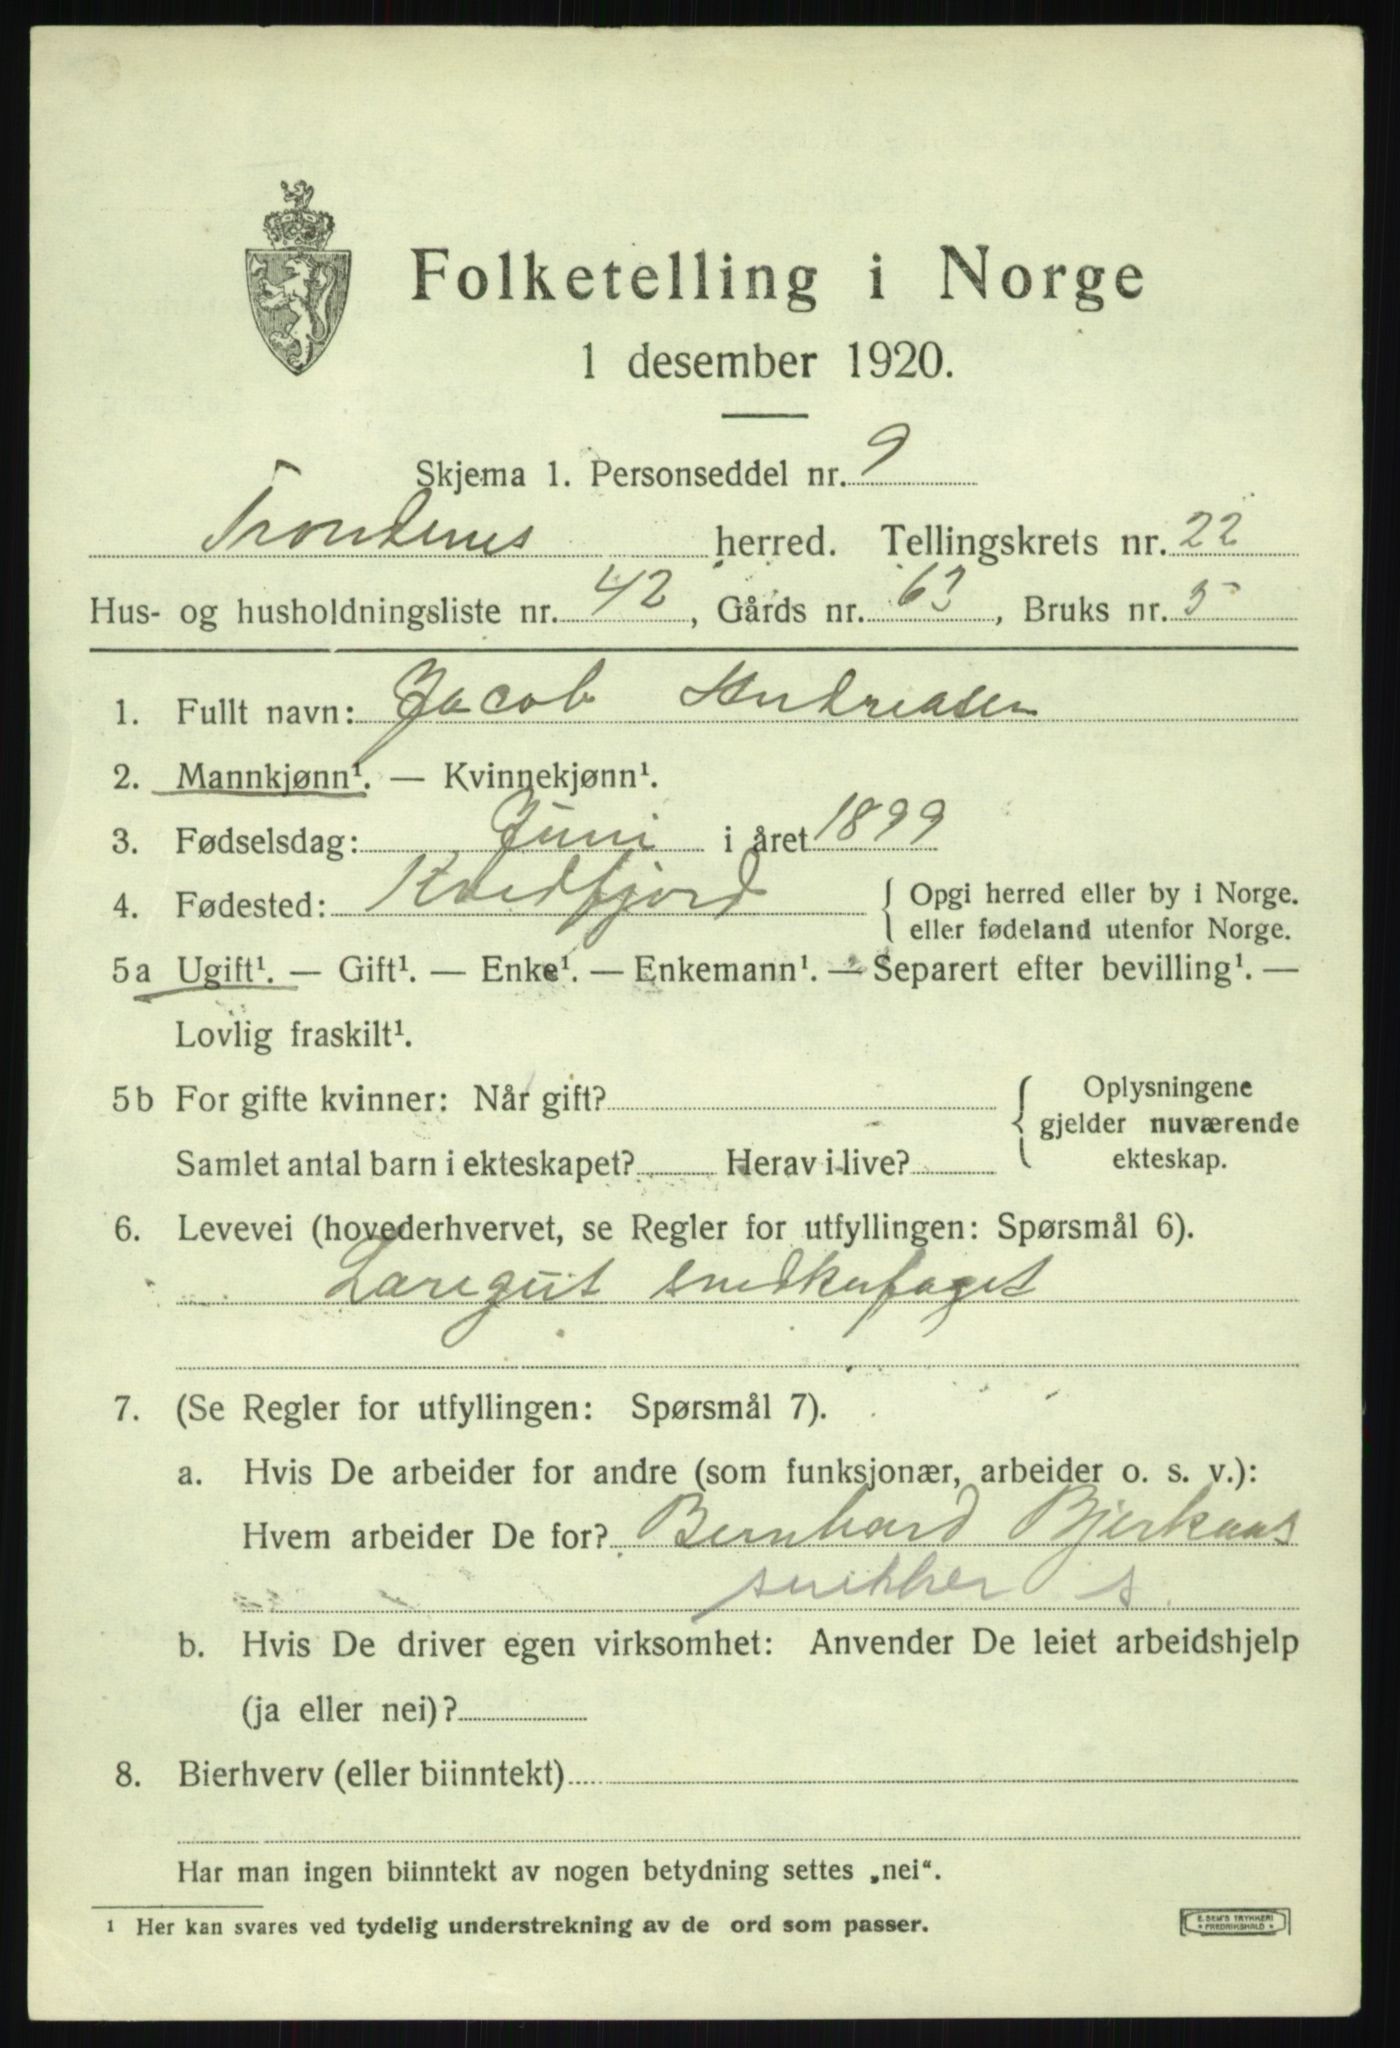 Folketelling i Norge
1 desember 1920.
Skjema 1. Personseddel nr. 9
Trondenes herred. Tellingskrets nr. 22
Hus- og husholdningsliste nr. 42, Gårds nr. 63, Bruks nr. 5
1. Fullt navn: Jacob Andreasen
2. Mannkjønn¹. — Kvinnekjønn¹.
3. Fødselsdag: Juni i året 1899
4. Fødested: Kvedfjord { Opgi herred eller by i Norge.
eller fødeland utenfor Norge.
5a Ugift¹. — Gift¹. — Enke¹. — Enkemann¹. — Separert efter bevilling¹. —
Lovlig fraskilt¹.
5b For gifte kvinner: Når gift? { Oplysningene
gjelder nuværende
Samlet antal barn i ekteskapet? Herav i live? ekteskap.
6. Levevei (hovederhvervet, se Regler for utfyllingen: Spørsmål 6).
Læregut snedkerfaget
7. (Se Regler for utfyllingen: Spørsmål 7).
a. Hvis De arbeider for andre (som funksjonær, arbeider o. s. v.):
Hvem arbeider De for? Bernhard Bjerkaas
snikker s.
b. Hvis De driver egen virksomhet: Anvender De leiet arbeidshjelp
(ja eller nei)?
8. Bierhverv (eller biinntekt)
Har man ingen biinntekt av nogen betydning settes „nei“.
¹ Her kan svares ved tydelig understrekning av de ord som passer.
E. SEM'S TRYKKERI
* FREDRIKSHALD *